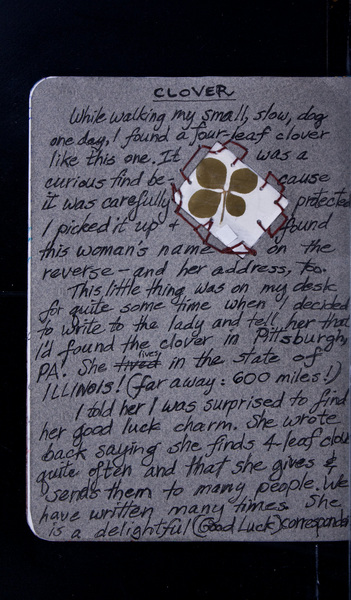 CLOVER
While walking my small, slow, dog
one day, I found a four-leaf clover
like this one. It was a
curious find because
it was carefully protected
I picked it up + found
this woman's name on the
reverse – and her address, too.
This little thing was on my desk
for quite some time when I decided
to write to the lady and tell her that
I'd found the clover in Pittsburgh,
PA. She lived lives in the state of
ILLINOIS! (far away: 600 miles!)
I told her I was surprised to find
her good luck charm. She wrote
back saying she finds 4-leaf clov
quite often and that she gives &
sends them to many people. We
have written many times. She
is a delightful (Good Luck) corresponde